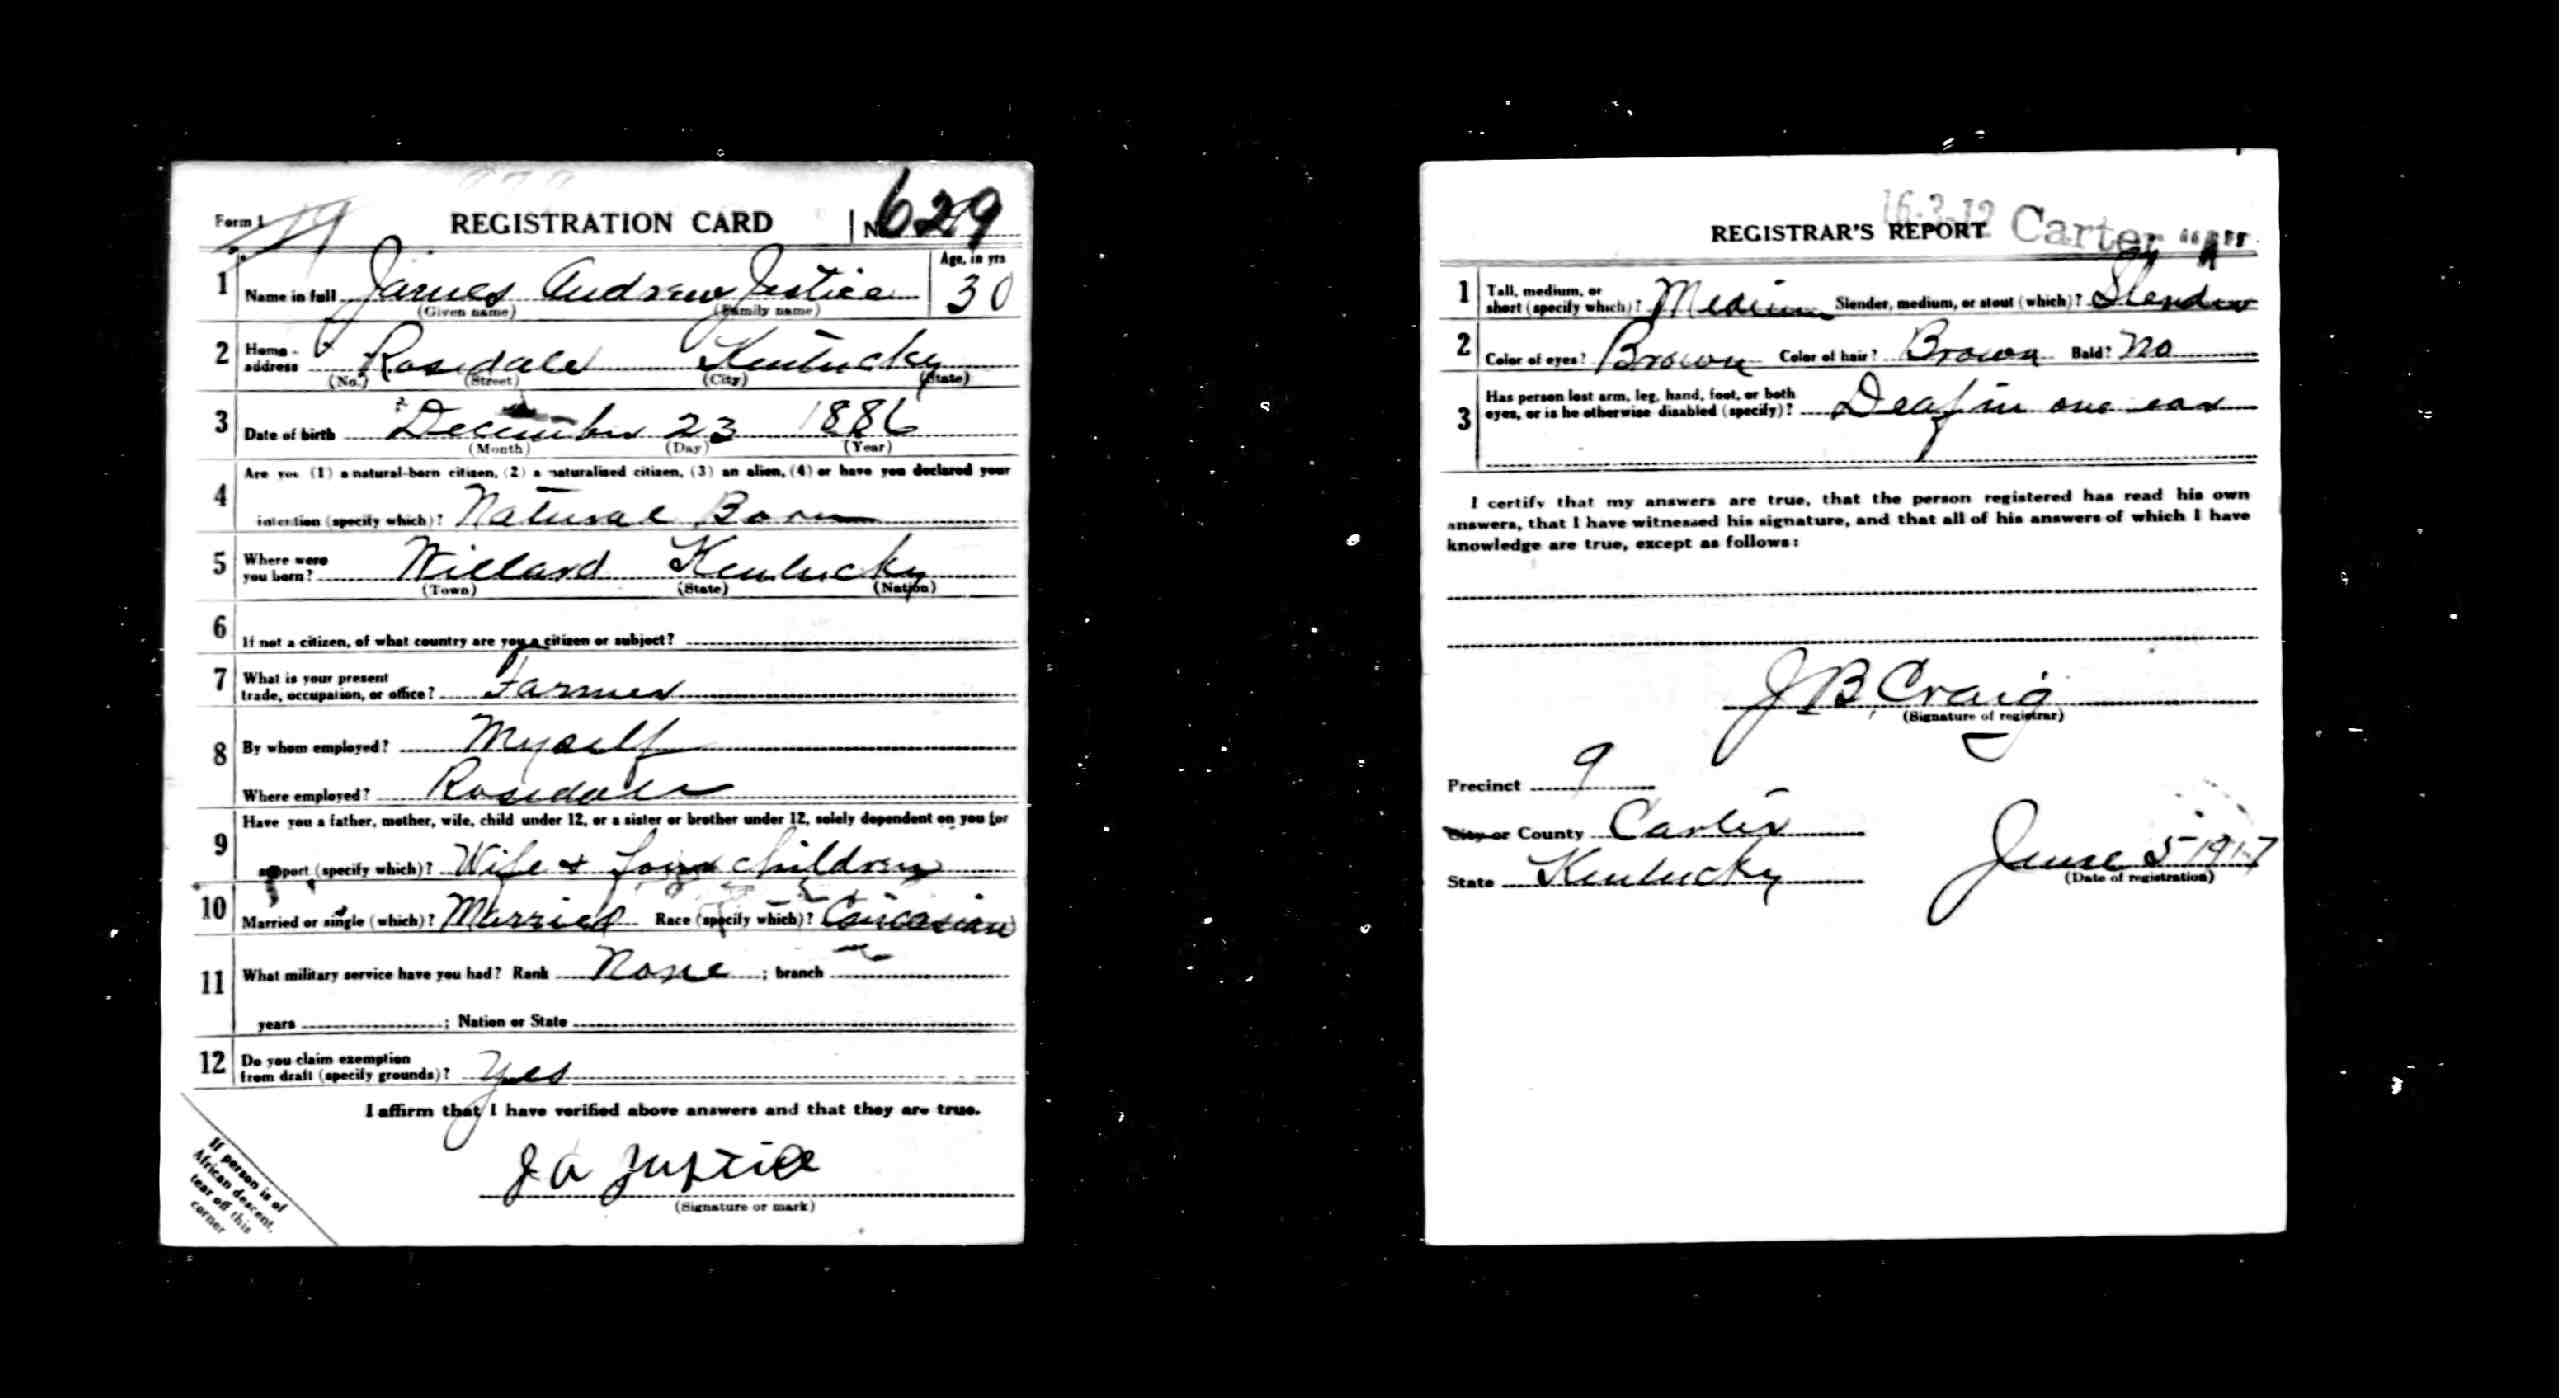 Form 1 REGISTRATION CARD No. 629
1 Name in full James Andrew Jestice Age, in yrs 30
(Given name) (Family name)
2 Home address Rosedale Kentucky
(No.) (Street) (City) (State)
3 Date of birth December 23 1886
(Month) (Day) (Year)
4 Are you (1) a natural-born citizen, (2) a naturalized citizen, (3) an alien, (4) or have you declared your
intention (specify which)? Natural Born
5 Where were you born? Willard Kentucky
(Town) (State) (Nation)
6 If not a citizen, of what country are you a citizen or subject?
7 What is your present
trade, occupation, or office? Farmer
8 By whom employed? Myself
Where employed? Rosedale
9 Have you a father, mother, wife, child under 12, or a sister or brother under 12, solely dependent on you for
support (specify which)? Wife + four children
10 Married or single (which)? Married Race (specify which)? Caucasian
11 What military service have you had? Rank None ; branch
years ; Nation or State
12 Do you claim exemption
from draft (specify grounds)? Yes
I affirm that I have verified above answers and that they are true.
J A Justice
(Signature or mark)
If person is of
African descent,
tear off this
corner
16-3-12 Carter "A"
REGISTRAR'S REPORT
1 Tall, medium, or
short (specify which)? Medium Slender, medium, or stout (which)? Slender
2 Color of eyes? Brown Color of hair? Brown Bald? No
3 Has person lost arm, leg, hand, foot, or both
eyes, or is he otherwise disabled (specify)? Deaf in one ear
I certify that my answers are true, that the person registered has read his own
answers, that I have witnessed his signature, and that all of his answers of which I have
knowledge are true, except as follows:
J B, Craig
(Signature of registrar)
Precinct 9
City or County Carter
State Kentucky June 5-1917
(Date of registration)